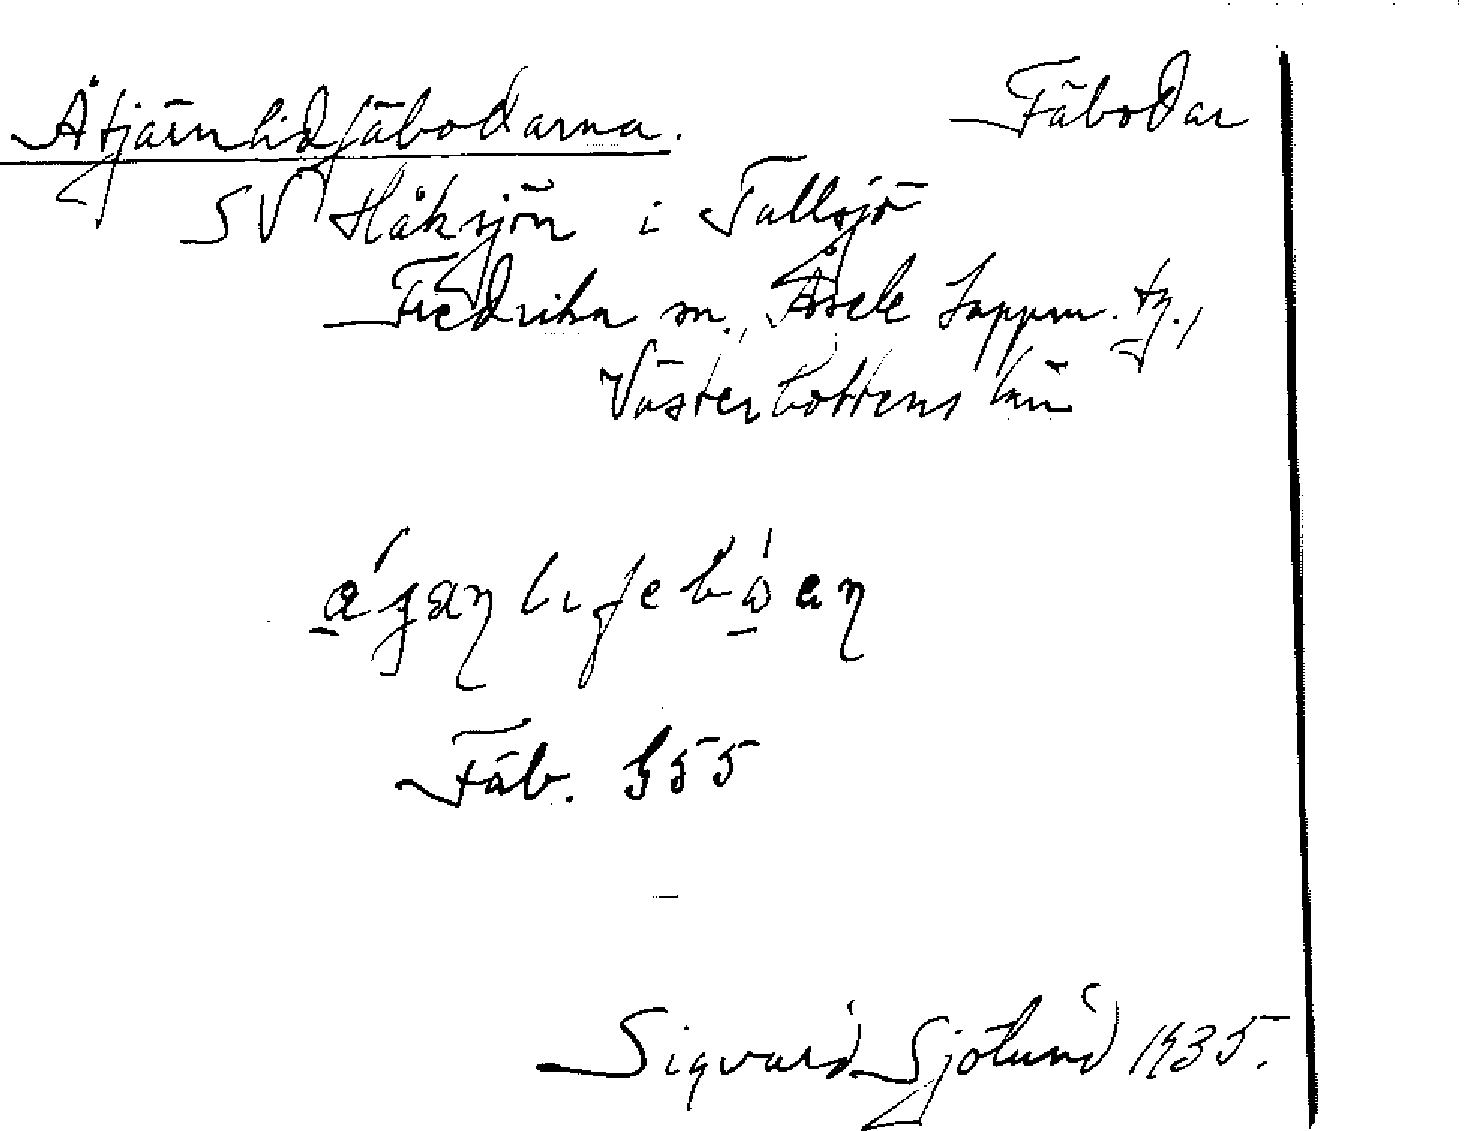 Åtjärnlidfäbodarna. Fäbodar
SV Håksjön i Tallsjö
Fredrika sn., Åsele lappm. tg.,
Västerbottens län
Fäb. 555
Sigvard Sjölund 1935.